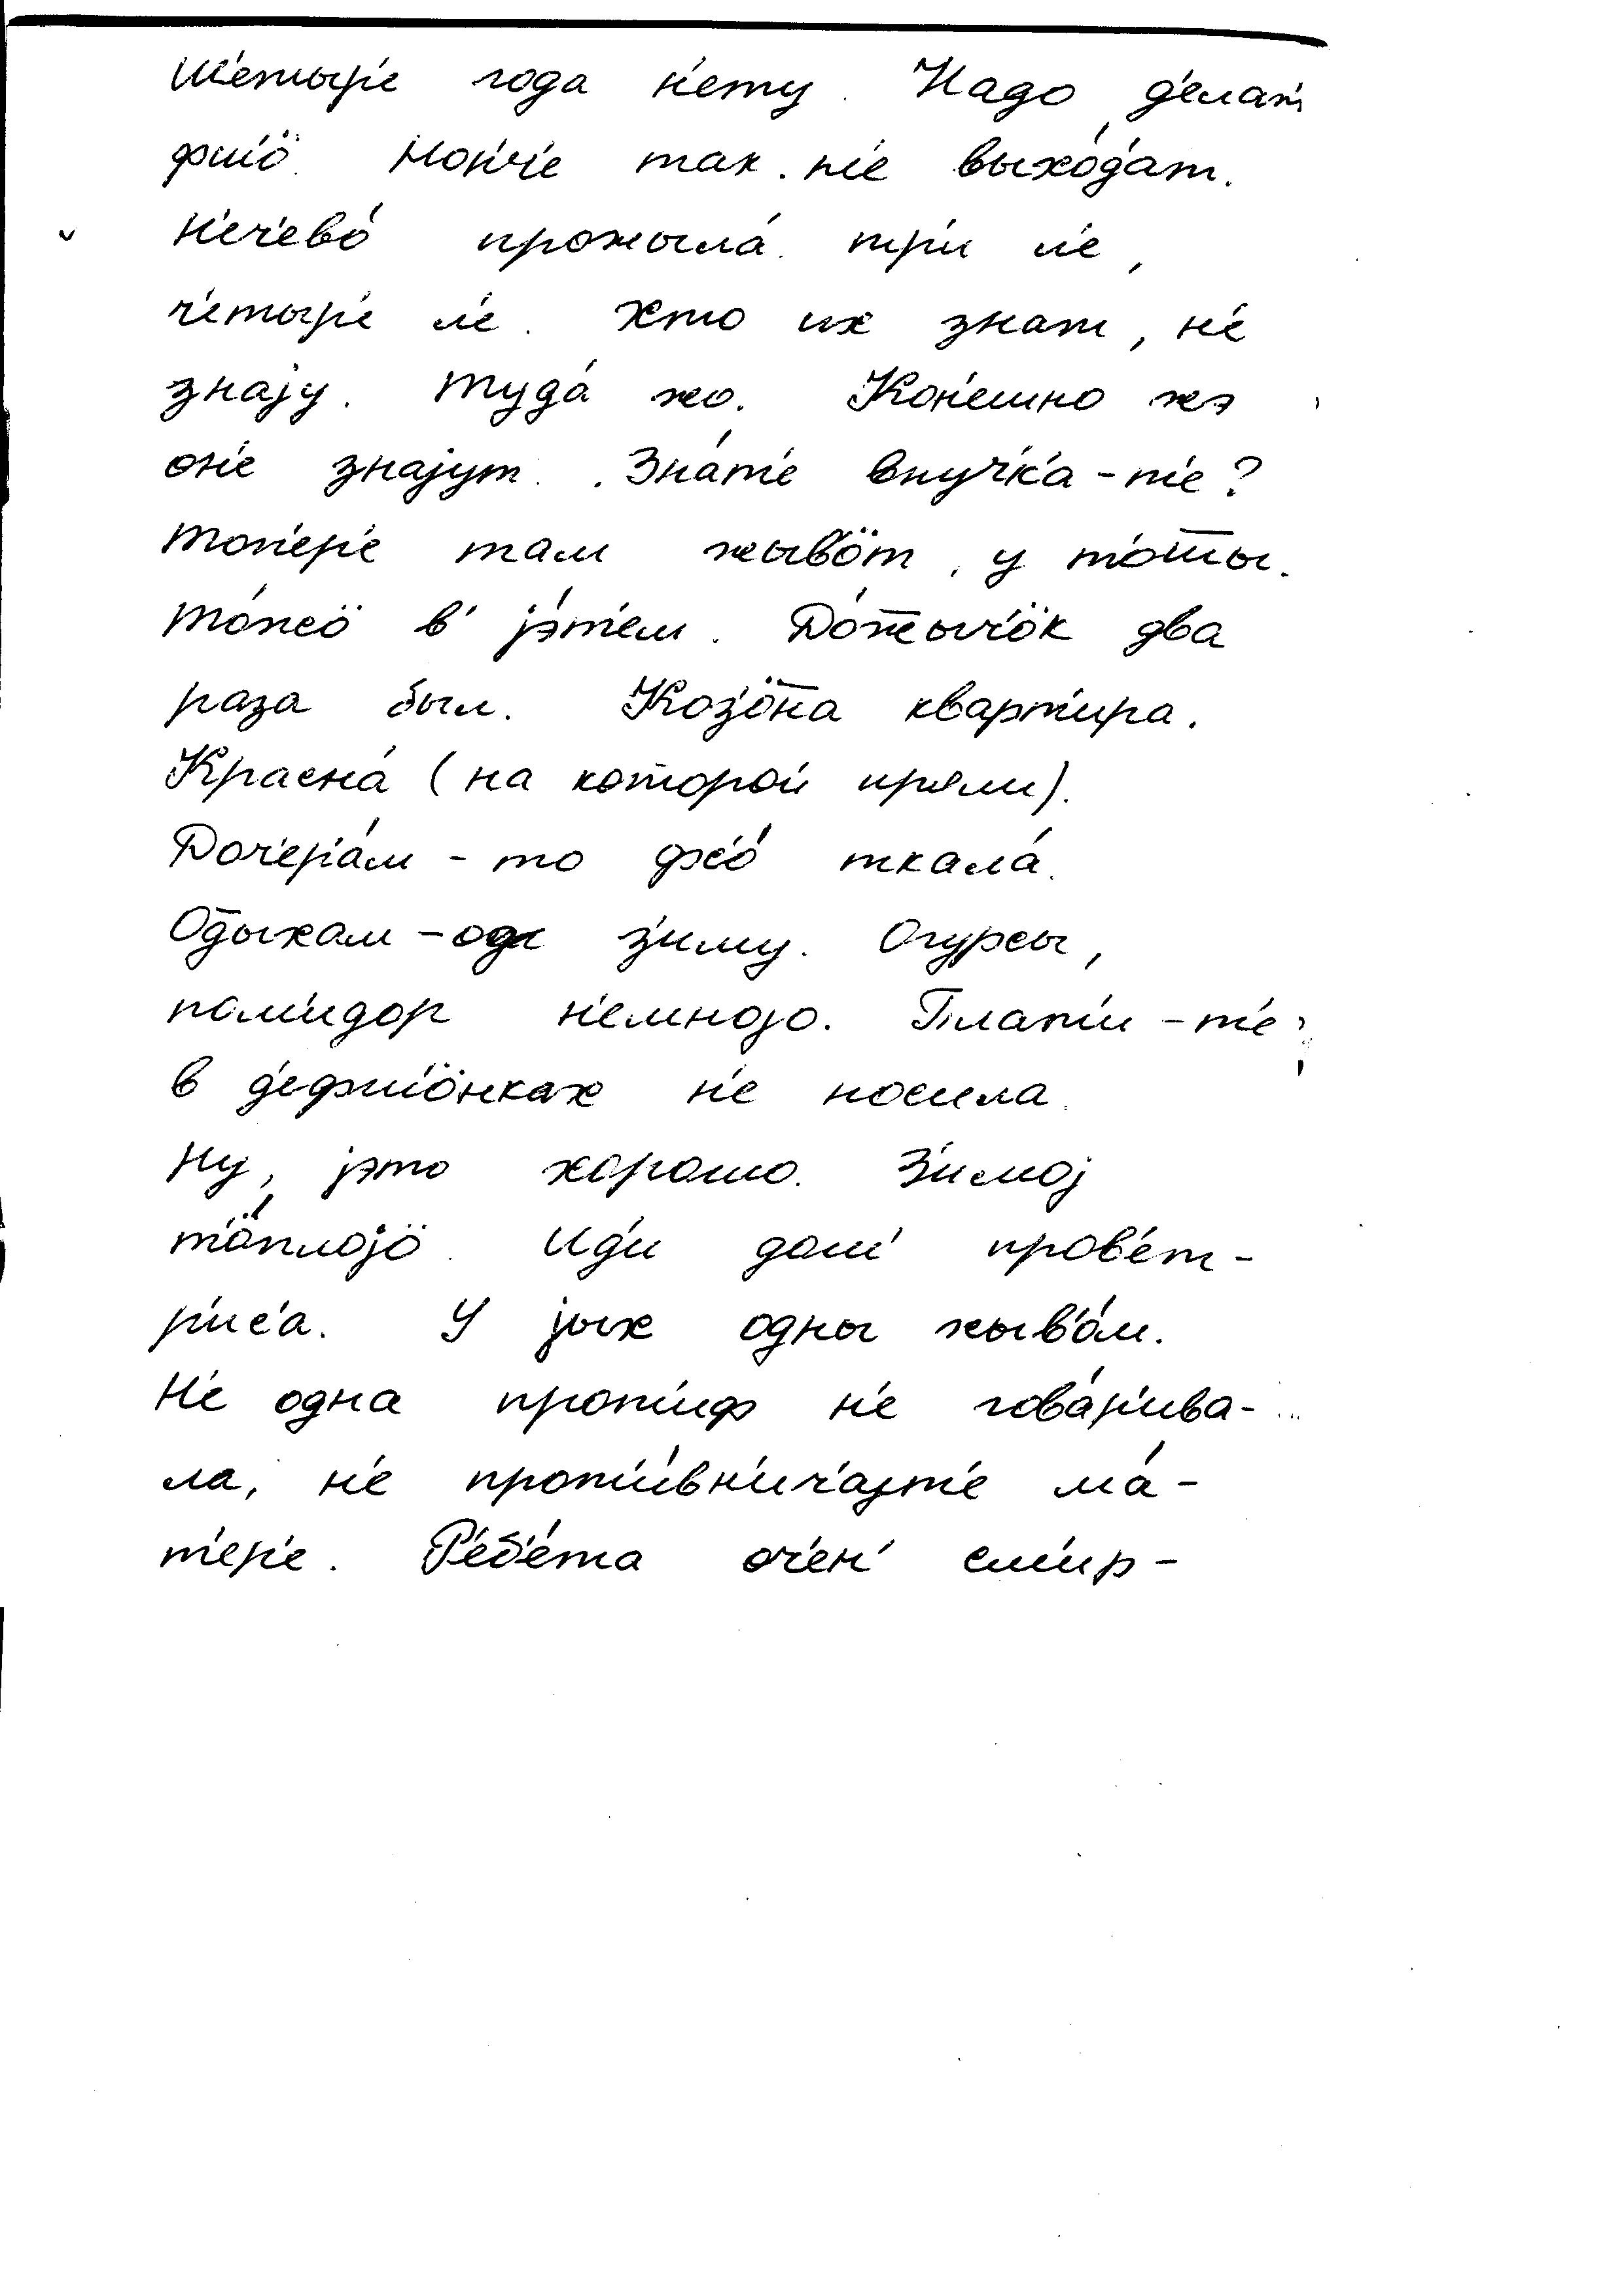 Ш'етыр'е года н'ету. Надо д'елат'
фш'ö. Нон'ч'е так. н'е выхо́д'ат.
Н'еч'ево́ прожыла́. тр'и л'е,
ч'етыр'е л'е. Хто их знат, н'е
знаjу. Туда́ жо. Кон'ешно жэ
он'е знаjут. Зна́т'е внуч'к'а-т'е?
Топ'ер'е там жыв'öт, у т'о́т̄ы.
То́жö в' jэ́т'ем. До́т̄ыч'öк два
раза был. Коз'öн̄а кварт'ира.
Красна́ (на которой пряли).
Доч'ер'а́м-то фс'о́ ткала́.
Од̄ыхам-од̄ з'иму. Огурсы,
пом'идор н'емноjо. Плат'и-т'е
в д'ефш'öнках н'е носила.
Ну, jэто хорошо. З'имоj
т'öплоjö. Ид'и дом' пров'е́т-
р'ис'а. У jых одны жыв'о́м.
Н'е одна прот'иф н'е гова́р'ива-
ла, н'е прот'и́вн'ич'аjт'е ма́-
т'ер'е. Р'еб'е́та оч'ен' см'ир-